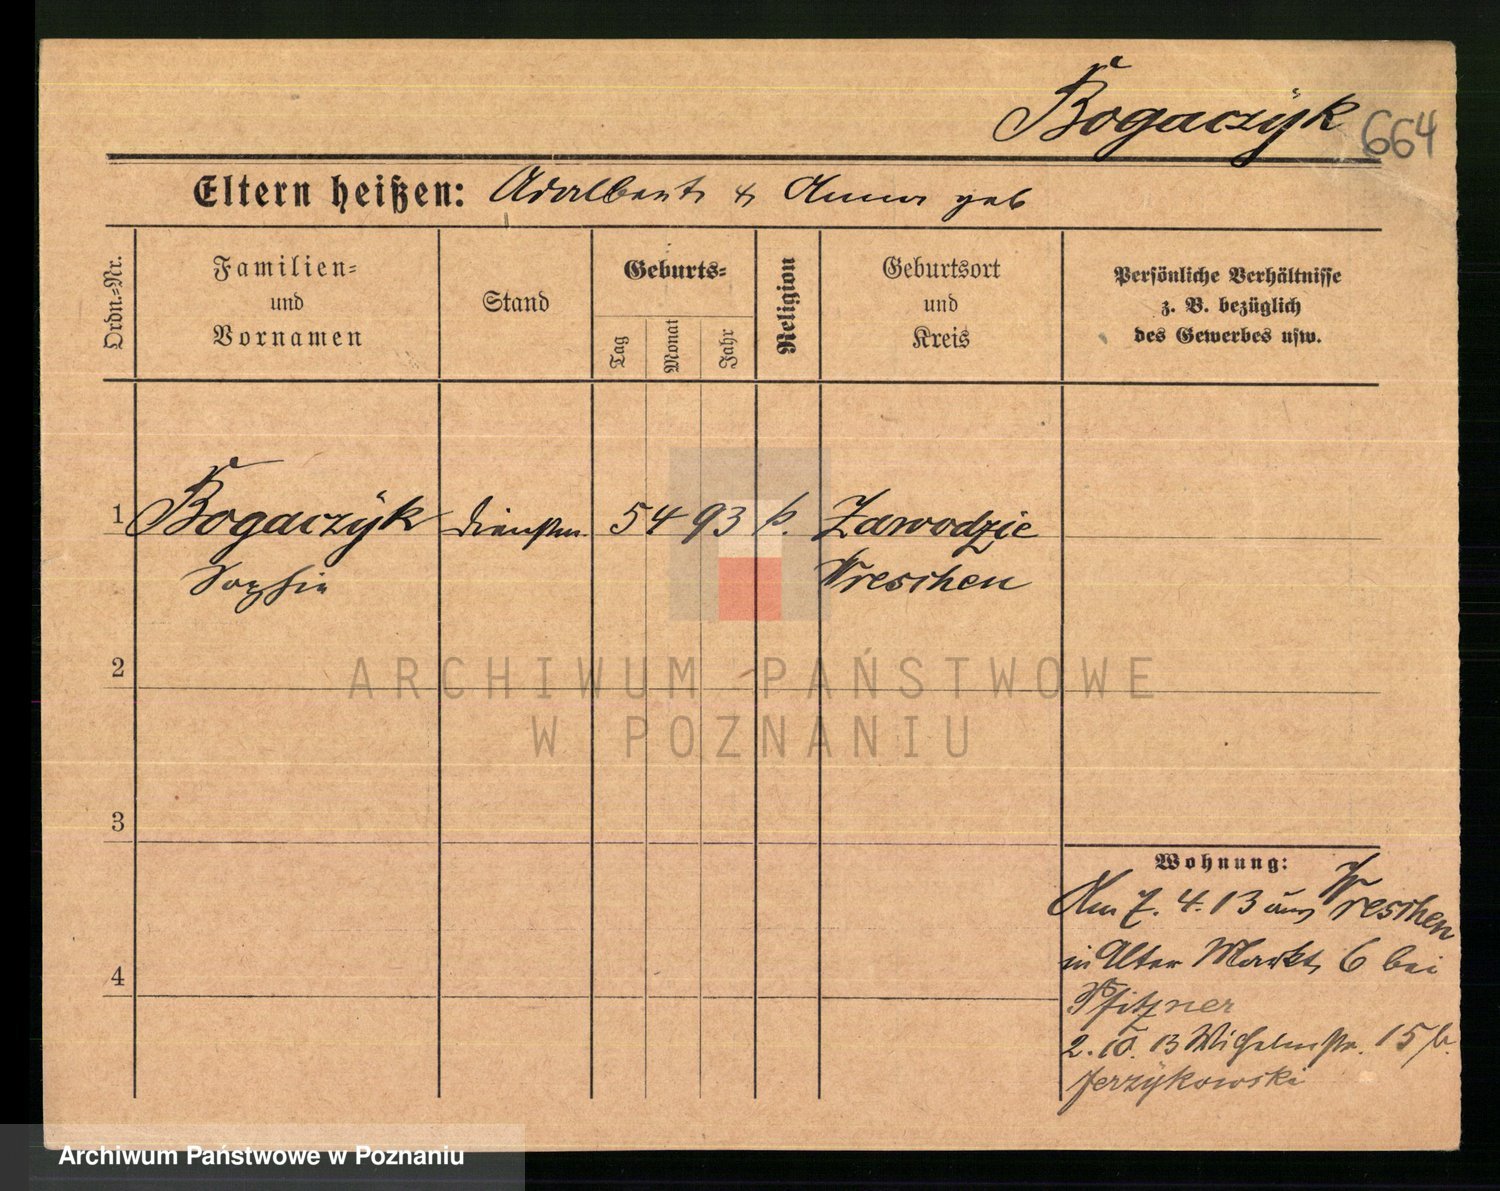 Bogaczÿk 664
Eltern heißen: Adalbert & Anna geb
Ordn.-Nr.
Familien-
und
Vornamen
Stand
Geburts-
Tag
Monat
Jahr
Religion
Geburtsort
und
Kreis
Persönliche Verhältnisse
z. B. bezüglich
des Gewerbes usw.
1 Bogaczÿk Dienstm. 5 4 93 k. Zawodzie
Sophie Wreschen
2
ARCHIWUM PAŃSTWOWE
W POZNANIU
3
Wohnung:
Am 7. 4. 13 aus Wreschen
in Alter Markt 6 bei
4
Pfitzner
2. 10. 13 Wilhelmstr. 15 b.
Jerzÿkowski
Archiwum Państwowe w Poznaniu